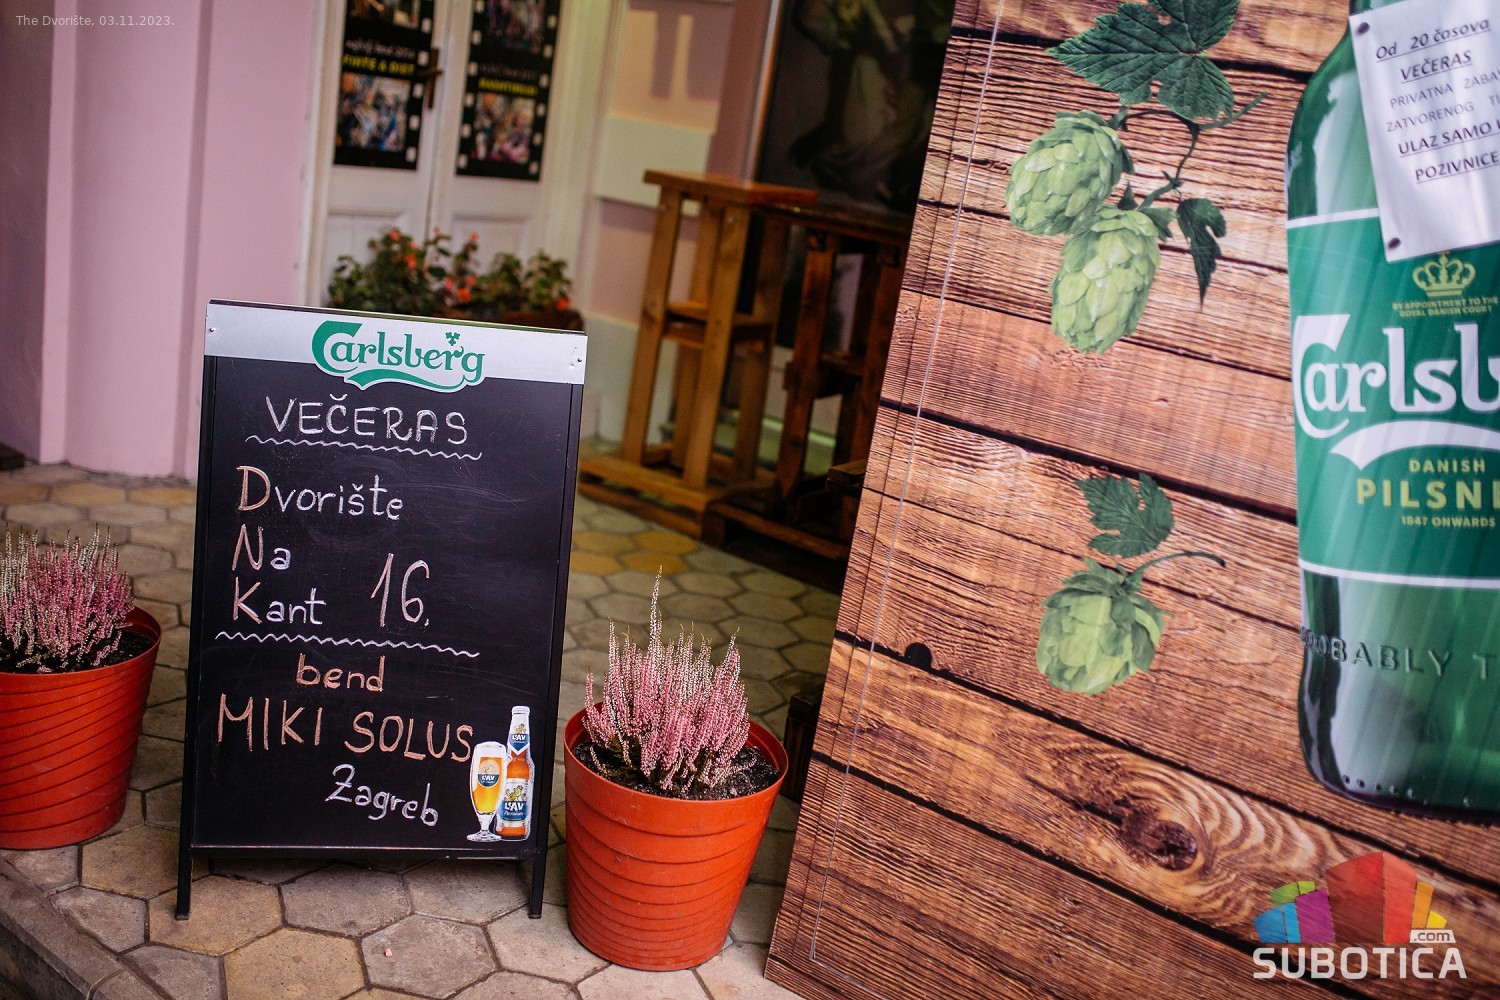 The Dvorište, 03.11.2023.
Carlsberg
VEČERAS
Dvorište
Na
Kant 16.
bend
MIKI SOLUS
Zagreb
LAV
LAV
LAV
Od 20 časova
VEČERAS
PRIVATNA
ZATVORENOG
ULAZ SAMO
POZIVNICE
BY APPOINTMENT TO THE
ROYAL DANISH COURT
Carlsb
DANISH
PILSN
1847 ONWARDS
OBABLY T
SUBOTICA
.com